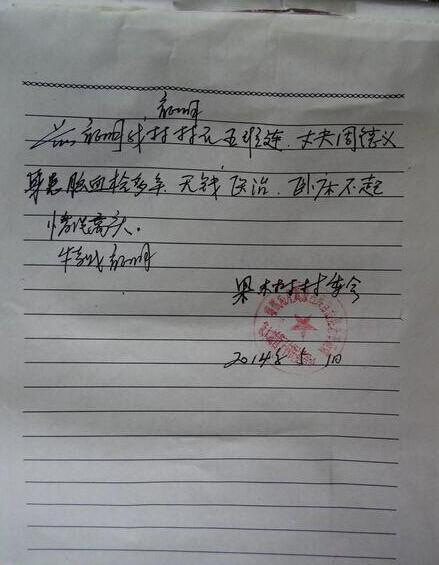 证明
兹证明我村村民王环连，丈夫周德义
身患脑血栓多年，无钱医治，卧床不起
情况属实。
特此证明
果木村村委会
2014年5月1日